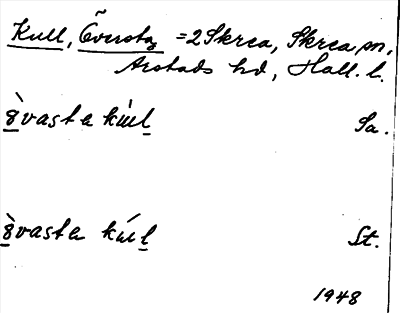 Kull, Öfversta =2 Skrea, Skrea sn,
Årstads hd, Hall. l.
ȣ̀vasta kúl Sa.
ȣ̀vasta kúl St.
1948